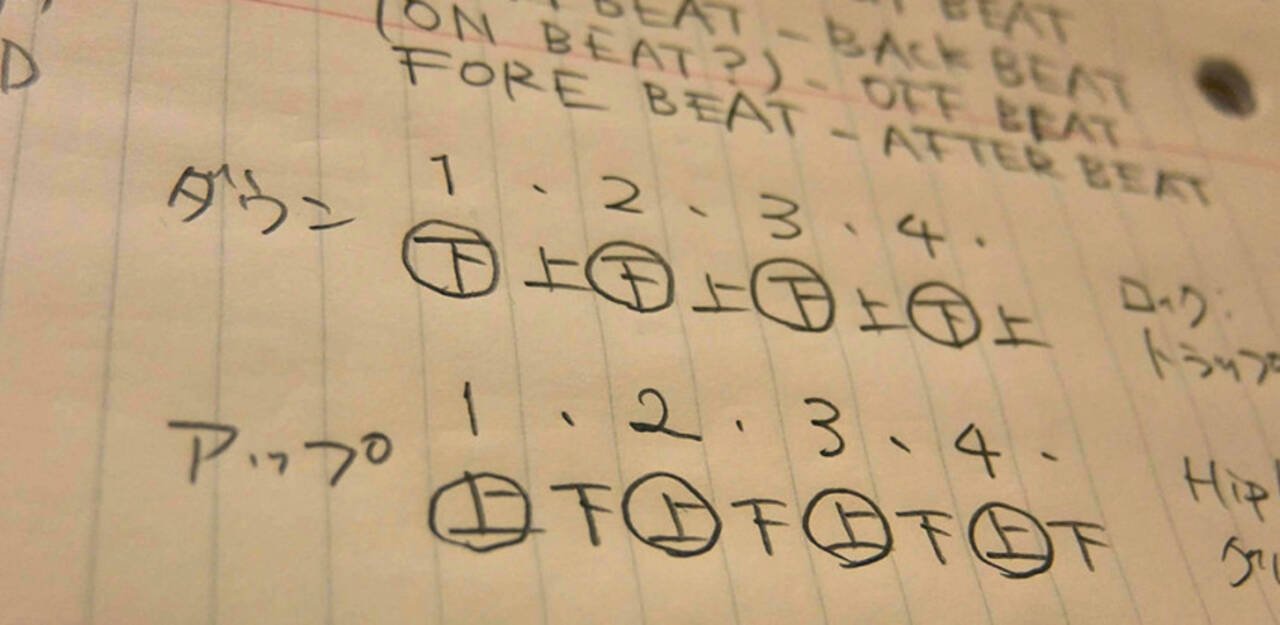 BEAT - BEAT
(ON BEAT?) - BACK BEAT
FORE BEAT - OFF BEAT
- AFTER BEAT
D
ダウン 1 . 2 . 3 . 4 .
下 上 下 上 下 上 下 上
ロック:
トラップ
アップ 1 . 2 . 3 . 4 .
上 下 上 下 上 下 上 下
Hip